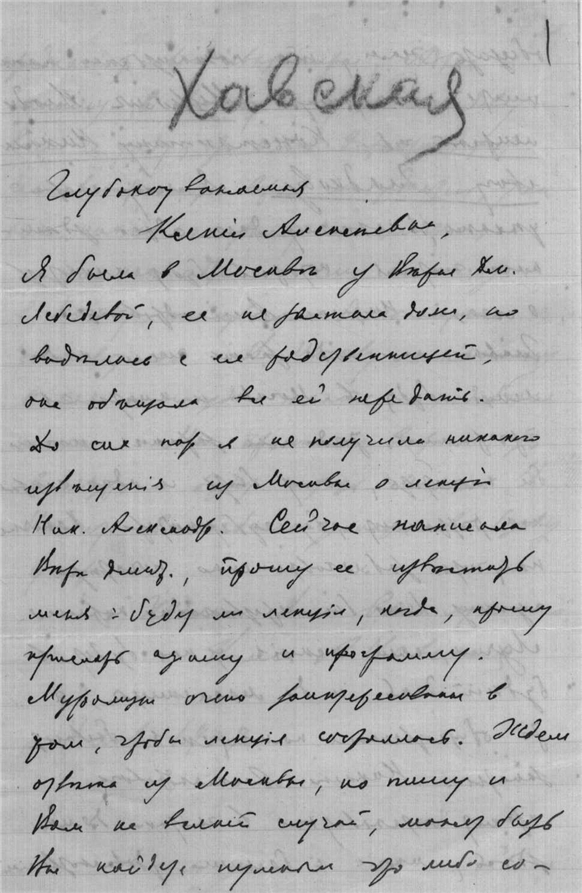 1
Хавская
Глубокоуважаемая
Ксенія Алексѣевна,
Я была в Москвѣ у Вѣры Дм.
Лебедевой, ее не застала дома, но
видѣлась с ее родственницей,
она обѣщала все ей передать.
До сих пор я не получила никакого
извѣщенія из Москвы о лекціи
Ник. Александр. Сейчас написала
Вѣрѣ Дмит., прошу ее извѣстить
меня: будет ли лекція, когда, прошу
прислать афишу и программу.
Муромцы очень заинтересованы в
том, чтобы лекція состоялась. Ждем
отвѣта из Москвы, но пишу и
Вам на всякій случай, может быть
Вы найдете нужным что либо со-